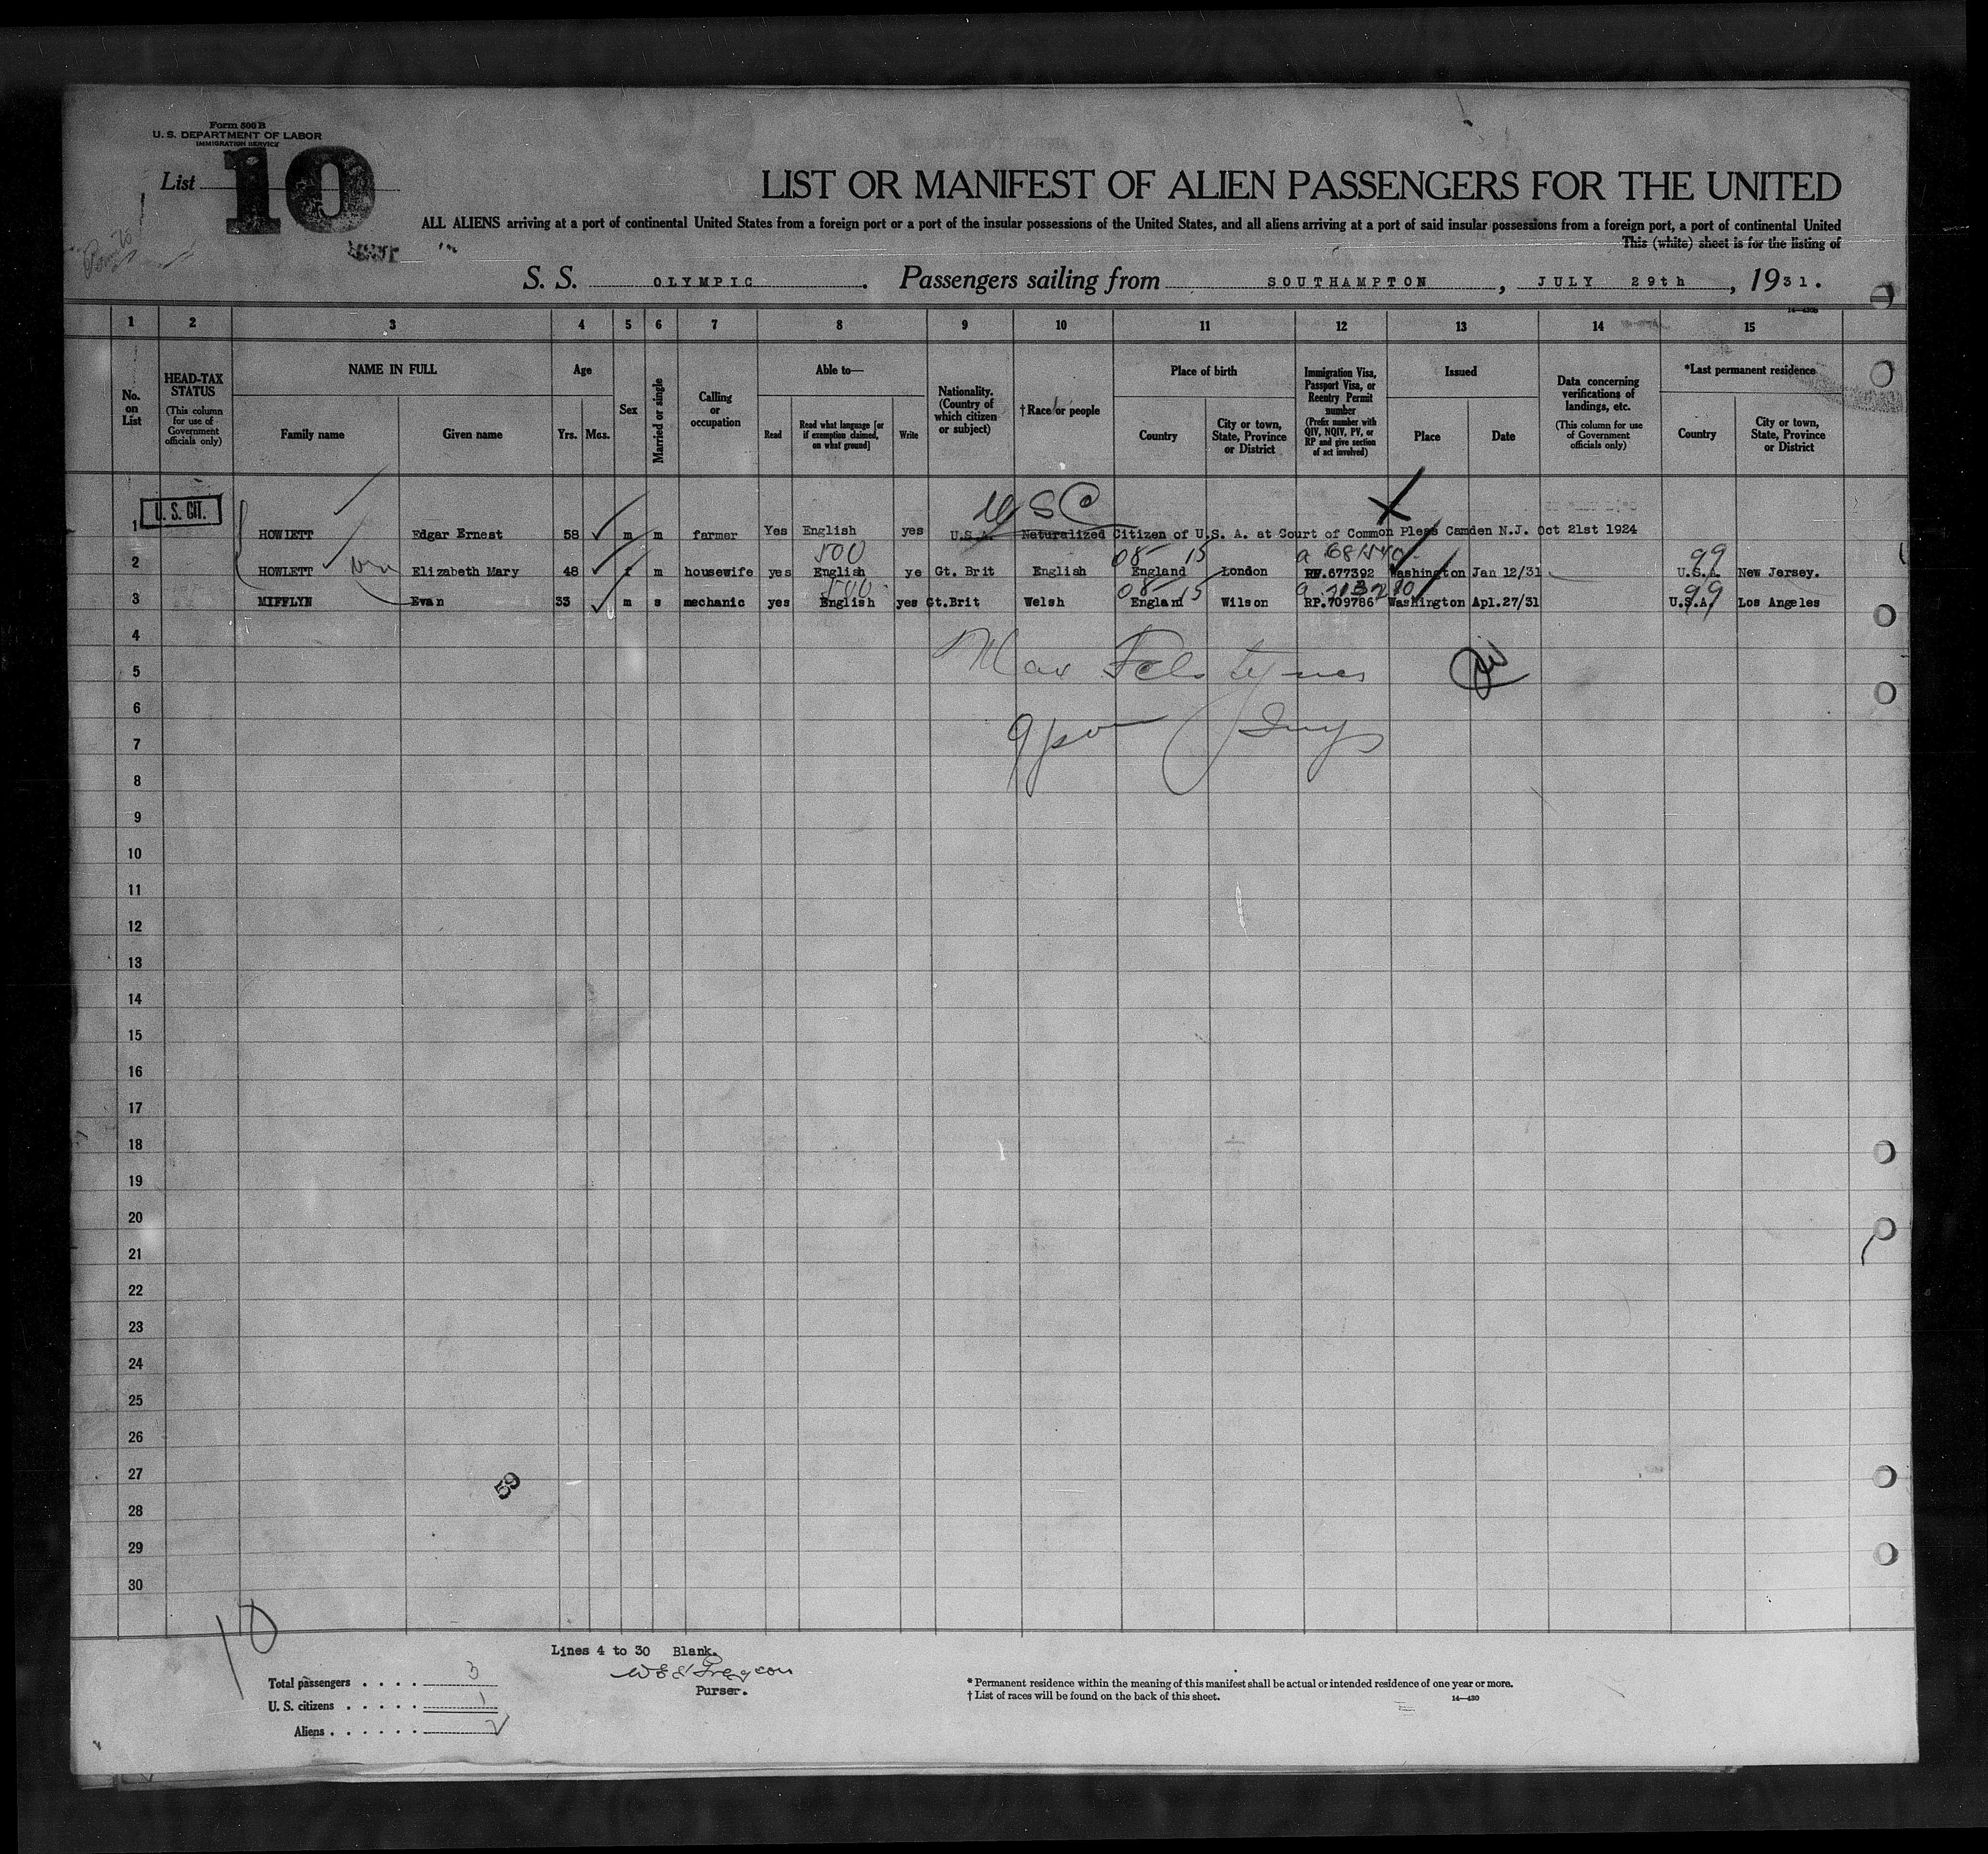 Form 500 B
U. S. DEPARTMENT OF LABOR
IMMIGRATION SERVICE
List 10
LIST OR MANIFEST OF ALIEN PASSENGERS FOR THE UNITED
ALL ALIENS arriving at a port of continental United States from a foreign port or a port of the insular possessions of the United States, and all aliens arriving at a port of said insular possessions from a foreign port, a port of continental United
This (white) sheet is for the listing of
S. S. OLYMPIC. Passengers sailing from SOUTHAMPTON, JULY 29th, 1931.
14—430B
1 2 3 4 5 6 7 8 9 10 11 12 13 14 15
No. on List
HEAD-TAX STATUS (This column for use of Government officials only)
NAME IN FULL
Family name
Given name
Age
Yrs. Mos.
Sex
Married or single
Calling or occupation
Able to—
Read
Read what language [or if exemption claimed, on what ground]
Write
Nationality. (Country of which citizen or subject)
†Race or people
Place of birth
Country
City or town, State, Province or District
Immigration Visa, Passport Visa, or Reentry Permit number (Prefix number with QIV, NQIV, PV, or RP and give section of act involved)
Issued
Place
Date
Data concerning verifications of landings, etc. (This column for use of Government officials only)
*Last permanent residence
Country
City or town, State, Province or District
U. S. CIT.
USC
1 HOWLETT Edgar Ernest 58 m m farmer Yes English yes U.S.A. Naturalized Citizen of U.S. A. at Court of Common Pleas Camden N.J. Oct 21st 1924
500 08 15 99
2 HOWLETT Elizabeth Mary 48 f m housewife yes English ye Gt. Brit English England London RP.677392 Washington Jan 12/31 U.S.A. New Jersey.
500 08 15 99
3 MIFFLYN Evan 33 m s mechanic yes English yes Gt.Brit Welsh England Wilson RP.709786 Washington Apl.27/31 U.S.A. Los Angeles
4
5
6
7
8
9
10
11
12
13
14
15
16
17
18
19
20
21
22
23
24
25
26
27
59
28
29
30
10
Lines 4 to 30 Blank.
Purser.
Total passengers 3
U. S. citizens 1
Aliens 2
* Permanent residence within the meaning of this manifest shall be actual or intended residence of one year or more.
† List of races will be found on the back of this sheet.
14—430